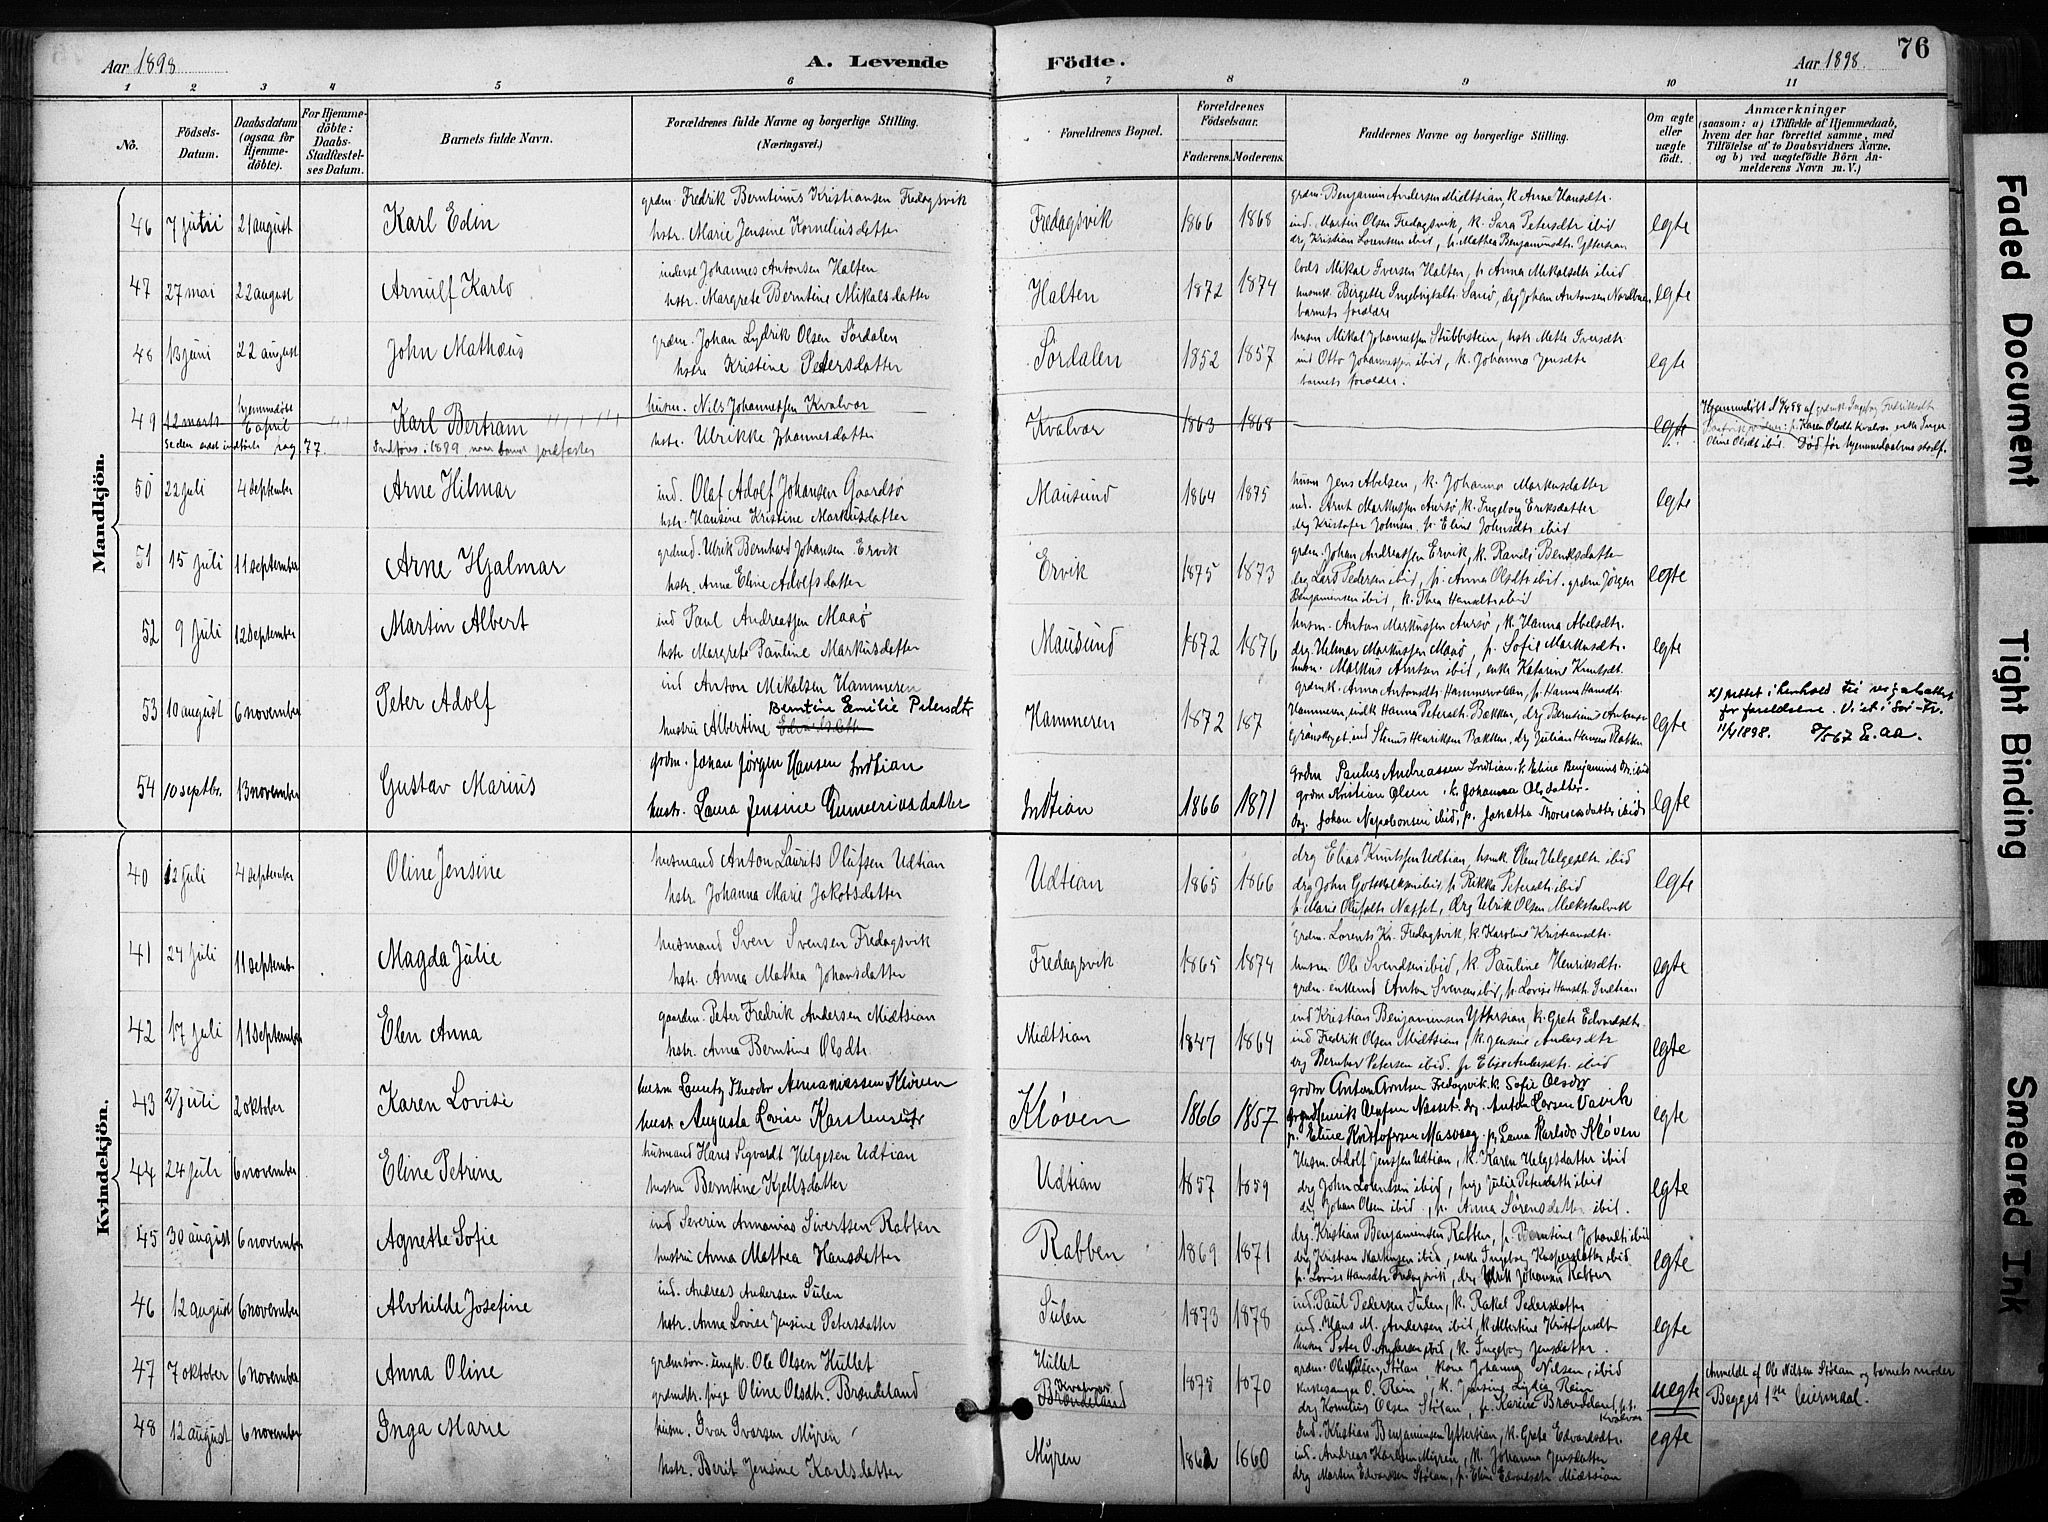 Aar 1898
A. Levende
Födte.
Aar 1898.
76
1 2 3 4 5 6 7 8 9 10 11
No.
Födsels-Datum.
Daabsdatum (ogsaa for Hjemmedöbte).
For Hjemmedöbte: Daabs-Stadfæstelses Datum.
Barnets fulde Navn.
Forældrenes fulde Navne og borgerlige Stilling. (Næringsvei.)
Forældrenes Bopæl.
Forældrenes Födselsaar.
Faderens. Moderens.
Faddernes Navne og borgerlige Stilling.
Om ægte eller uægte födt.
Anmærkninger
(saasom: a) i Tilfælde af Hjemmedaab, hvem der har forrettet samme, med Tilföielse af to Daabsvidners Navne. og b) ved uægtefödte Börn Anmelderens Navn m. V.)
Mandkjön.
46 7 juni 21 august Karl Edin
grdm. Fredrik Berntinus Kristiansen Fredagsvik
hstr. Marie Jensine Korneliusdatter
Fredagsvik 1866 1868
grdm. Benjamin Andersen Midtsian k Anne Hansdtr.
ind. Martin Olsen Fredagsvik, k. Sara Petersdtr ibid
drg Kristian Lorentsen ibid, p. Mathea Benjaminsdtr. Yttersian
egte
47 27 mai 22 august Arnulf Karlo
inderst Johannes Antonsen Halten
hstr. Margrete Berntine Mikalsdatter
Halten 1872 1874
lods Mikal Iversen Halten, p. Anna Mikalsdtr ibid
husmk. Birgitte Ingebrigtsdtr. Sanö, drg Johan Antonsen Nordbuen
barnets forældre
egte
48 13 juni 22 august John Mathæus
grdm. Johan Lydrik Olsen Sördalen
hstr. Kristine Petersdatter
Sördalen 1852 1857
husm Mikal Johannessen Stubbestein, hstr Mette Iversdtr
ind Otto Johannessen ibid, k. Johanna Jensdtr
barnets forældre.
egte
49 12 marts hjemmedöbt 6 april Karl Bertram
Indføres i 1899 naar barnet jordfæstes
pag 77.
husm. Nils Johannessen Kvalvær
hstr. Ulrikke Johannesdatter
Kvalvær 1863 1868
egte
50 22 juli 4 september Arne Hilmar
ind. Olaf Adolf Johansen Gaardsø
hstr. Hansine Kristine Markusdatter
Mausund 1864 1875
husm Jens Abelsen, k. Johanna Markusdatter
ind. Arnt Markussen Aursø, k. Ingeborg Eriksdatter
drg Kristofer Johnsen, p. Eline Johnsdtr ibid
egte
51 15 juli 11 september Arne Hjalmar
grdmd. Ulrik Bernhard Johansen Ervik
hstr. Anne Eline Adolfsdatter
Ervik 1875 1873
grdm. Johan Andreassen Ervik, k. Randi Benksdatter
drg Lars Pedersen ibid, p. Anna Olsdtr ibid. grdm Jørgen
Benjaminsen ibid, k. Thea Hansdtr ibid
egte
52 9 juli 12 september Martin Albert
ind Paul Andreassen Maasø
hstr Margrete Pauline Markusdatter
Mausund 1872 1876
husm. Anton Markussen Aursø, k. Hanna Abelsdtr.
drg. Hilmar Markussen Maasø, p. Sofie Markusdtr.
husm. Markus Arntsen ibid, enke Katrine Knutsdtr.
egte
53 10 august 6 november Peter Adolf
ind Anton Mikalsen Hammeren
Berntine Emilie Petersdtr
hustru Albertine
Hammeren 1872 187
grdmk. Anna Antonsdtr. Hammervolden, p. Hanna Hansdtr.
Hammeren, indk Hanna Petersdtr. Bakken, drg Berntinus Antonsen
ind Stenus Henriksen Bakken, drg Julian Hansen
egte
x) rettet i henhold til
for foreldrene. V
11/4 1898. 8/5 67 E. aa.
54 10 septbr. 13 november Gustav Marius
grdm. Johan Jørgen Hansen Indtian
hustr. Laura Jensine Gunneriusdatter
Indtian 1866 1871
grdm Paulus Andreassen Indtian. k. Eline Benjamins Dr. ibid
grdm Kristian Olsen, k. Johanna Olsdatter
drg. Johan Napoleonsen ibid, p. Jonetta Thoresensdatter ibid
egte
Kvindekjön.
40 12 juli 4 september Oline Jensine
husmand Anton Laurits Olufsen Udtian
hstr. Johanna Marie Jakobsdatter
Udtian 1865 1866
drg Elias Knutssen Udtian, hsmk Oline Helgesdtr ibid
drg John Gotskalksen ibid, p. Rikka Petersdtr ibid
p. Marie Olufsdtr Nasset, drg Ulrik Olsen
egte
41 24 juli 11 september Magda Julie
husmand Sven Svensen Fredagsvik
hstr. Anna Mathea Johansdatter
Fredagsvik 1865 1874
grdm. Lorents Kr. Fredagsvik, k. Karoline Kristiansdtr.
husm. Ole Svendsen ibid, k. Pauline Henriksdtr.
grdm. enkemd Anton Svensen ibid, p. Lovise Hansdtr. Indtian
egte
42 17 juli 11 september Elen Anna
gaardm. Peter Fredrik Andersen Midtsian
hstr. Anna Berntine Olsdtr.
Midtsian 1847 1864
ind Kristian Benjaminsen Yttersian, k. Grete Edvardsdtr.
ind Fredrik Olsen Midtsian, k. Jensine Andersdtr
drg Bernhar Petersen ibid. p. Elise Andersdtr. ibid
egte
43 27 juli 2 oktober Karen Lovise
husm Lauritz Theodor Annaniassen Kløven
hustr. Augusta Lovise Karstensdtr
Kløven 1866 1857
grdm Anton Arntsen Fredagsvik. k. Sofie Olsdtr
grdm Henrik Olufsen Nasset. drg. Anton Larsen Vavik
p. Eline Kristofersen Masvaag. p. Lana Karlsdtr Kløven
egte
44 24 juli 6 november Eline Petrine
husmand Hans Sigvardt Helgesen Udtian
hustru Berntine Kjellsdatter
Udtian 1857 1859
Husm. Adolf Jenssen Udtian, k. Karen Helgesdatter ibid
drg John Lorentsen ibid, pige Julie Petersdatr ibid
drg Johan Olsen ibid, p. Anna Sørensdatter ibid.
egte
45 30 august 6 november Agnette Sofie
ind Severin Annanias Sivertsen Rabben
hustru Anna Mathea Hansdatter
Rabben 1869 1871
drg. Kristian Benjaminsen Rabben, p. Berntine Johansdtr ibid
drg Kristian Markussen ibid, enke Ingeborg Kaspersdatter ibid
p. Lovise Hansdtr. Fredagsvik, drg Ulrik Johansen Rabben
egte
46 12 august 6 november Alvhilde Josefine
ind. Andreas Andersen Sulen
hstr. Anne Lovise Jensine Petersdatter
Sulen 1873 1878
ind. Paul Pedersen Sulen, k. Rakel Pedersdatter
ind. Hans M. Andersen ibid, k. Albertine Kristofersdtr
husm Peter O. Andersen ibid, k. Ingeborg Jensdatter.
egte
47 7 oktober 6 november Anna Oline
grdmsøn. ungk. Ole Olsen Hullet
grdmdtr. pige Oline Olsdtr. Brøndeland
Hullet
Brøndeland
1875 1870
grdm. Ole Nilsen Stölan, kone Johanna Nilsen, ibid
kirkesanger O. Rein, k. Jensine Lydia Rein
drg Kornelius Olsen Stölan, p. Karine Brøndeland, p.t. Kvalvær
uegte
Anmeldt af Ole Nilsen Stölan og barnets moder
Begges 1ste leiermaal.
48 12 august 6 november Inga Marie
husm. Ivar Ivarsen Myren
hstr. Berit Jensine Karlsdatter
Myren 1862 1860
Ind. Kristian Benjaminsen Yttersian, k. Grete Edvardsdtr.
ind. Andreas Karlsen Myren, k. Johanna Jensdatter
drg Martin Edvardsen Stölan, p. Eline Edvardsdtr Midtsian
egte
Faded Document
Tight Binding
Smeared Ink